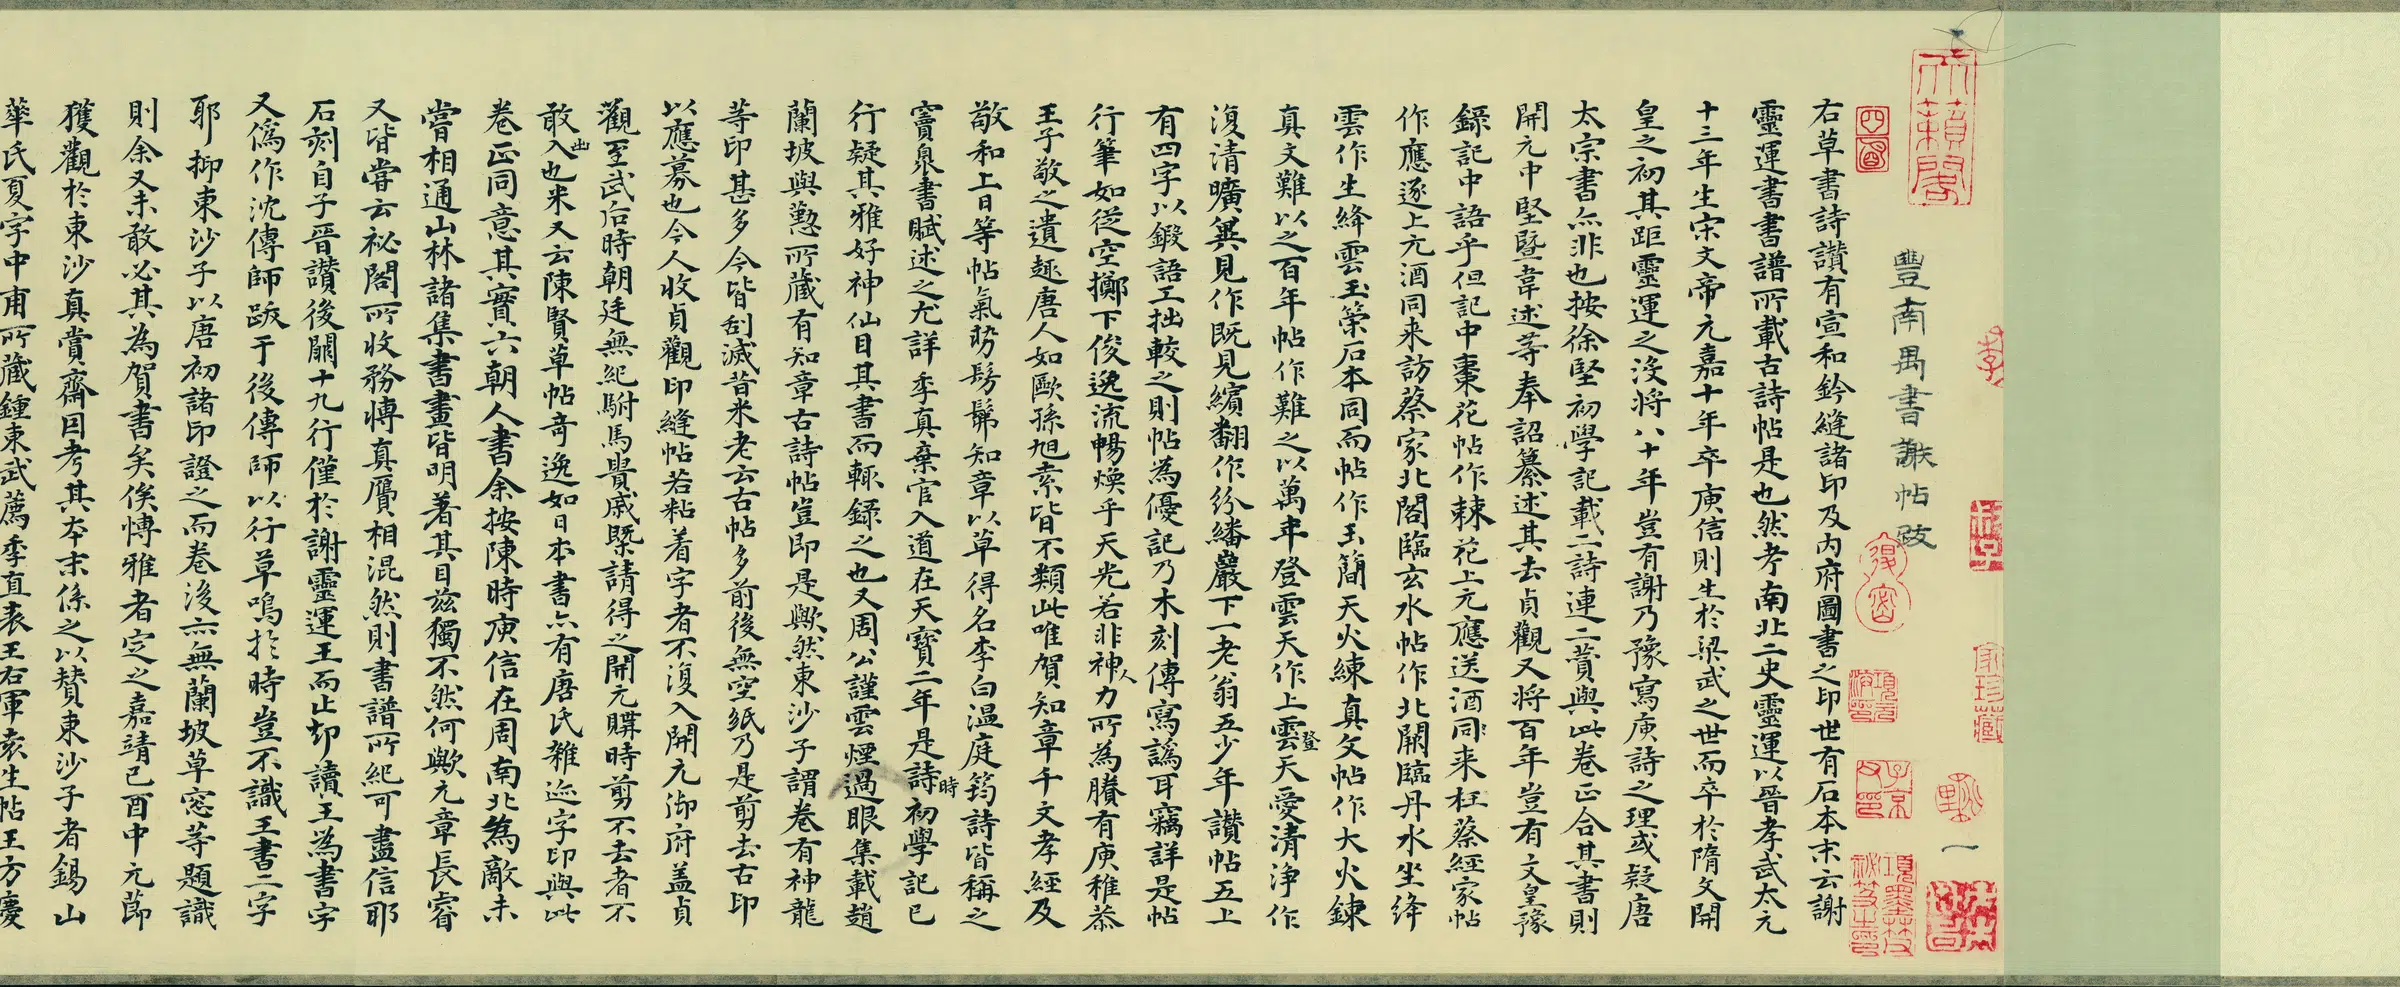 天籟閣
豐南禺書謝帖跋
右草書詩讚有宣和鈐縫諸印及內府圖書之印世有石本末云謝
靈運書書譜所載古詩帖是也然考南北二史靈運以晉孝武太元
十三年生宋文帝元嘉十年卒庾信則生於梁武之世而卒於隋文開
皇之初其距靈運之沒將八十年豈有謝乃豫寫庾詩之理或疑唐
太宗書亦非也按徐堅初學記載二詩連二讚與此卷正合其書則
開元中堅暨韋述等奉詔纂述其去貞觀又將百年豈有文皇豫
錄記中語乎但記中棗花帖作棘花上元應送酒同来枉蔡經家帖
作應逐上元酒同来訪蔡家北閣臨玄水帖作北闕臨丹水坐絳
雲作生絳雲玉策石本同而帖作玉簡天火練真文帖作大火鍊
真文難以之百年帖作難之以萬年登雲天作上登雲天愛清淨作
復清曠巽見作既見繽翻作紛繙巖下一老翁五少年讚帖五上
有四字以鍛語工拙較之則帖為優記乃木刻傳寫譌耳竊詳是帖
行筆如從空擲下俊逸流暢煥乎天光若非人神力所為賸有庾稚恭
王子敬之遺趣唐人如歐孫旭素皆不類此唯賀知章千文孝經及
敬和上日等帖氣勢髣髴知章以草得名李白溫庭筠詩皆稱之
竇臮書賦述之尤詳季真棄官入道在天寶二年是時初學記已
行疑其雅好神仙目其書而輒錄之也又周公謹雲煙過眼集載趙
蘭坡與懃所藏有知章古詩帖豈即是歟然東沙子謂卷有神龍
等印甚多今皆刮滅昔米老云古帖多前後無空紙乃是剪去古印
以應募也今人收貞觀印縫帖若粘着字者不復入開元御府蓋貞
觀至武后時朝廷無紀駙馬貴戚槩請得之開元購時剪不去者不
敢出也米又云陳賢草帖奇逸如日本書亦有唐氏雜迹字印與此
卷正同意其實六朝人書余按陳時庾信在周南北為敵未
嘗相通山林諸集書畫皆明著其目茲獨不然何歟元章長睿
又皆嘗云祕閣所收務博真贋相混然則書譜所紀可盡信耶
石刻自子晉讚後闕十九行僅於謝靈運王而止却讀王為書字
又偽作沈傳師跋于後傳師以行草鳴於時豈不識王書二字
耶抑東沙子以唐初諸印證之而卷後亦無蘭坡草窓等題識
則余又未敢必其為賀書矣俟博雅者定之嘉靖己酉中元節
獲觀於東沙真賞齋因考其本末係之以贊東沙子者錫山
華氏夏字中甫所藏鍾東武薦季直表王右軍袁生帖王方慶